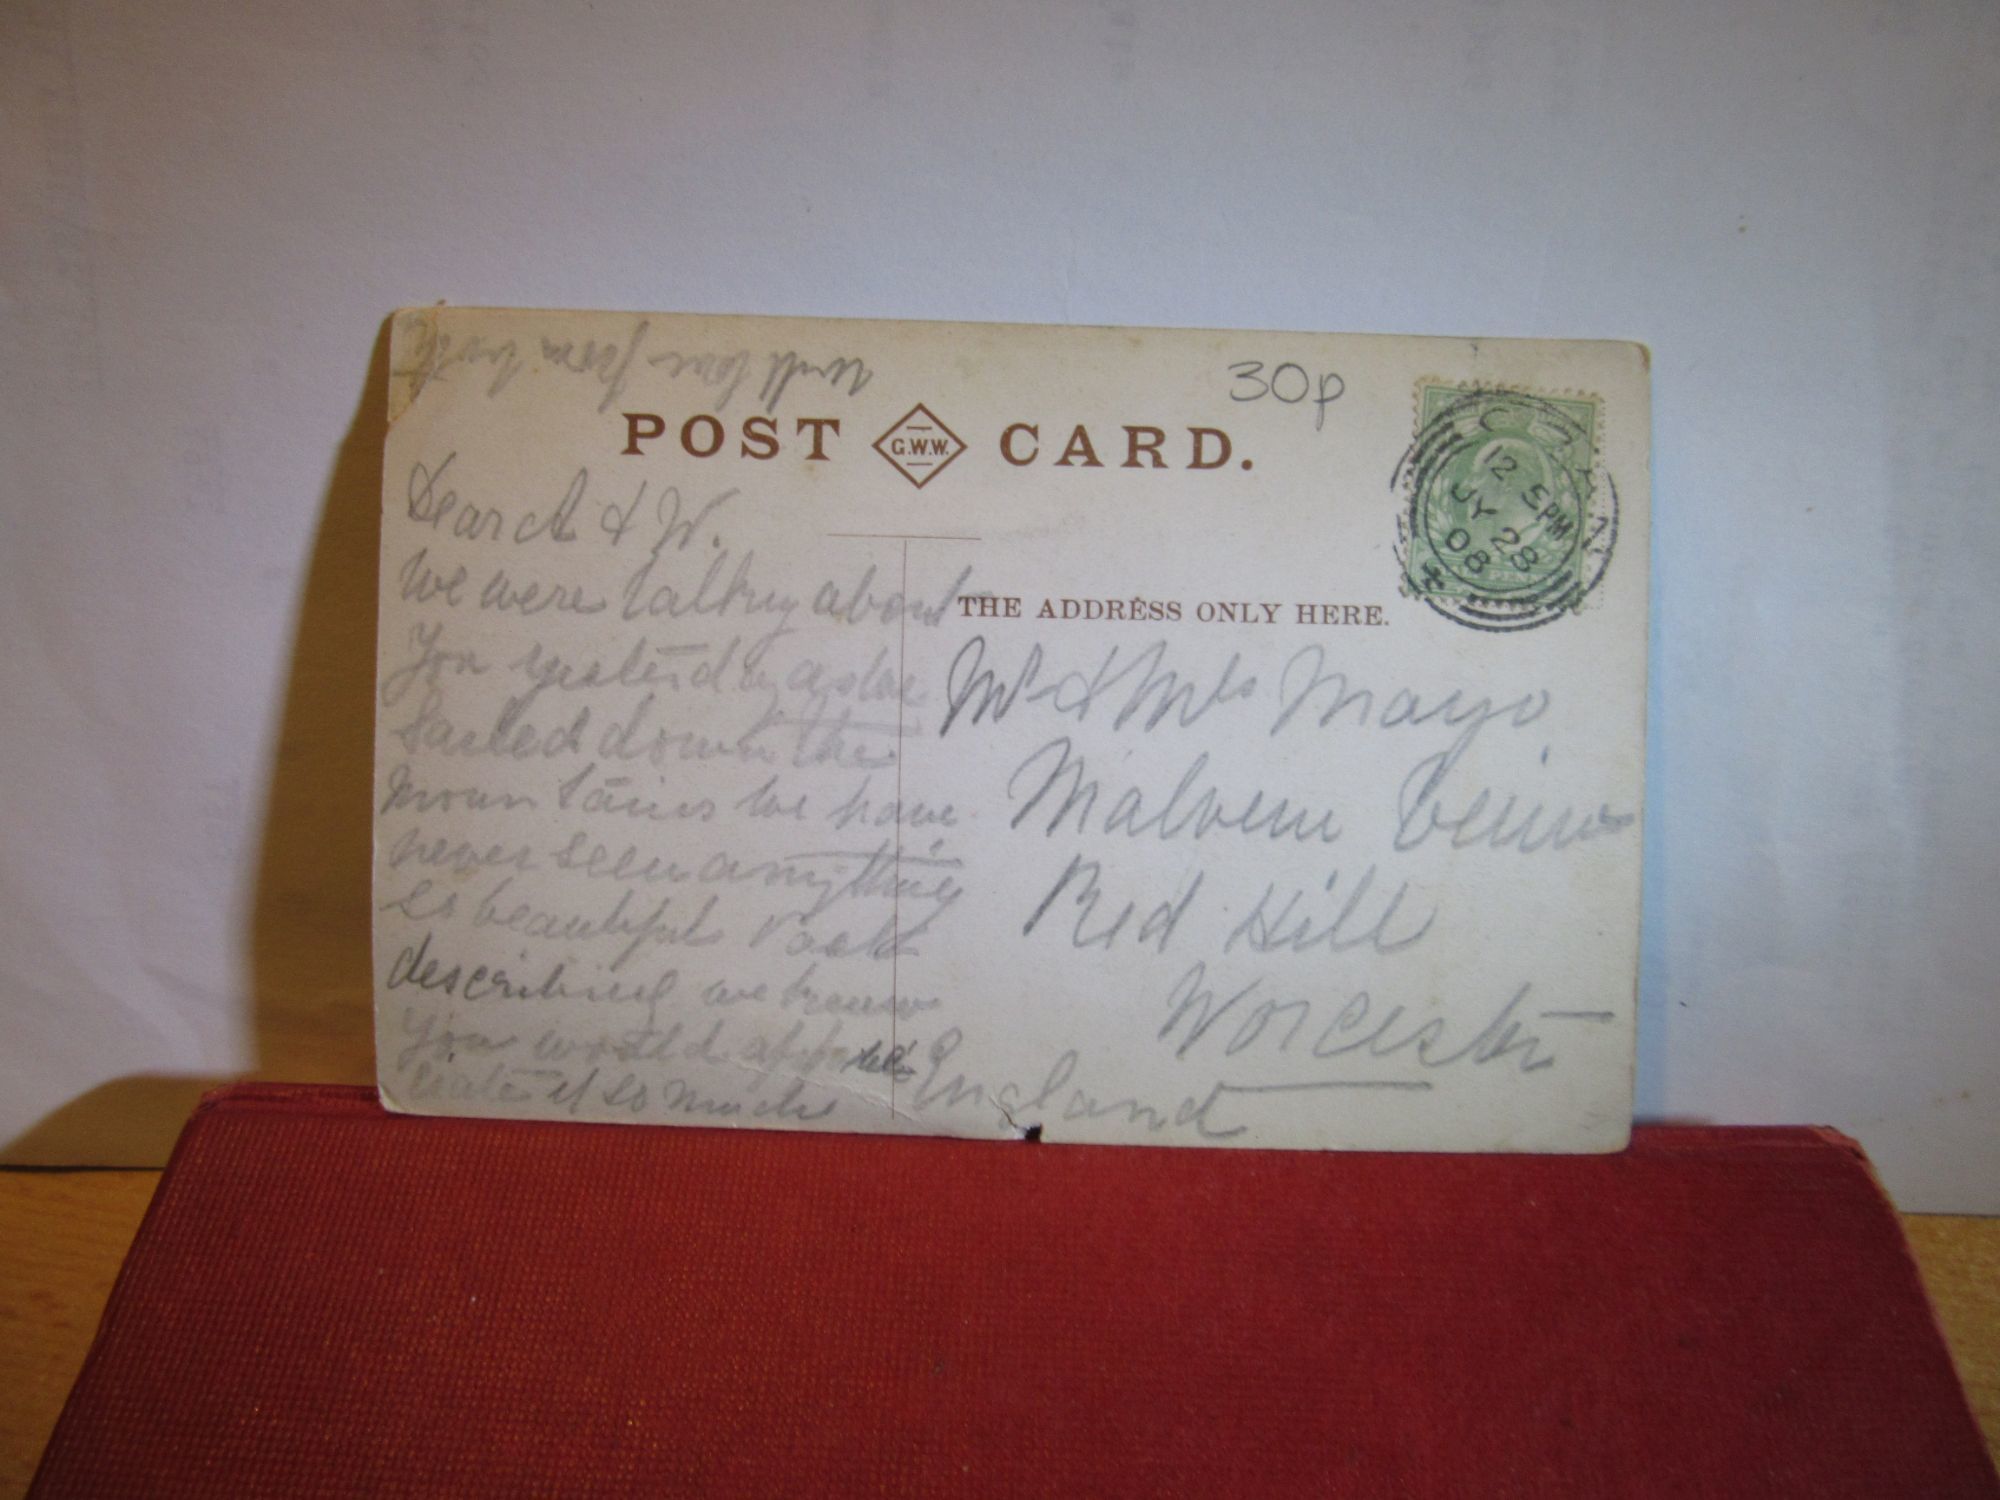 With love from both
30p
POST G.W.W. CARD.
12 5PM
JY 28
08
Dear A & W.
We were talking about
you yesterday as we
sailed down the
mountains we have
never seen anything
so beautiful
describing we know
you would appre
ciate it so much
THE ADDRESS ONLY HERE.
Mr & Mrs Mayo
Malvern View
Red Hill
Worcester
England